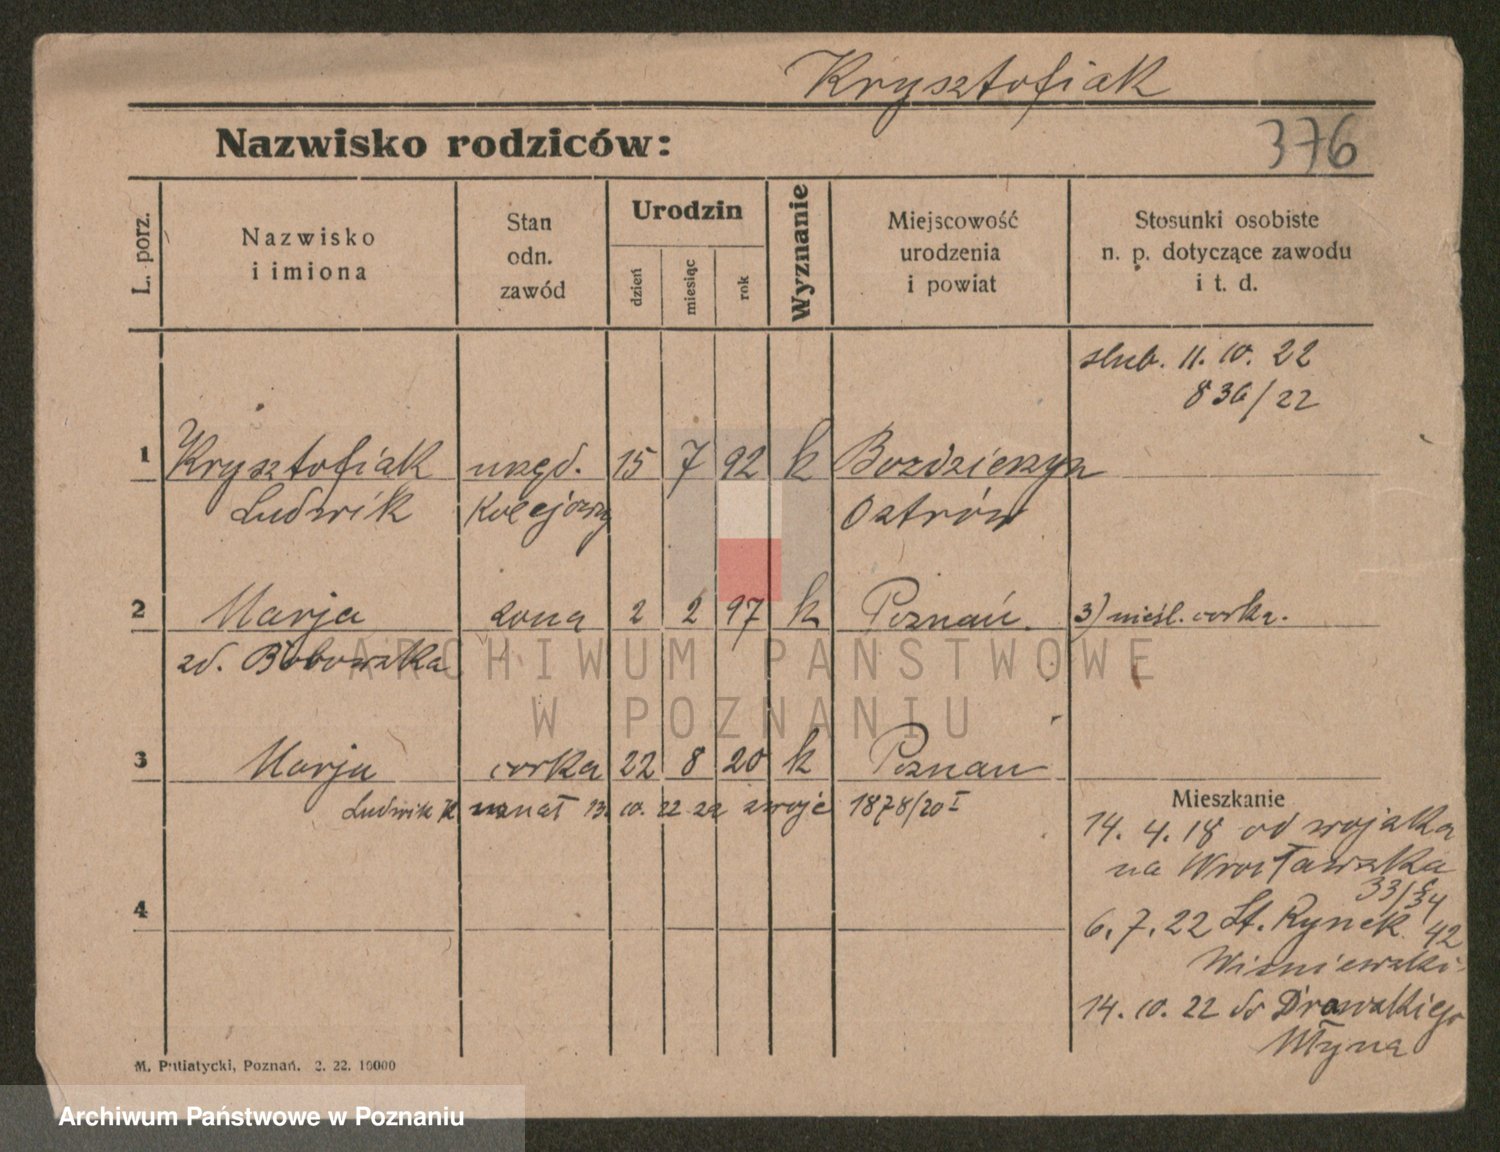 Krysztofiak
Nazwisko rodziców:
376
L. porz.
Nazwisko
i imiona
Stan
odn.
zawód
Urodzin
dzień
miesiąc
rok
Wyznanie
Miejscowość
urodzenia
i powiat
Stosunki osobiste
n. p. dotyczące zawodu
i t. d.
slub. 11. 10. 22
836/22
1 Krysztofiak urzęd. 15 7 92 k
Ludwik Kolejowy Ostrów
2 Marja zona 2 2 97 k Poznań. 3) nieśl. corka.
zd. Bobowska
ARCHIWUM PAŃSTWOWE
W POZNANIU
3 Marja corka 22 8 20 k Poznan
Ludwik K uznał 13. 10. 22 za swoje 1878/20 I
Mieszkanie
14. 4. 18 od wojska
na Wrocławska
33/34
4
6. 7. 22 St. Rynek 42
Wisniewski
14. 10. 22 do Drowskiego
Młyna
M. Putiatycki, Poznań. 2. 22. 10000
Archiwum Państwowe w Poznaniu